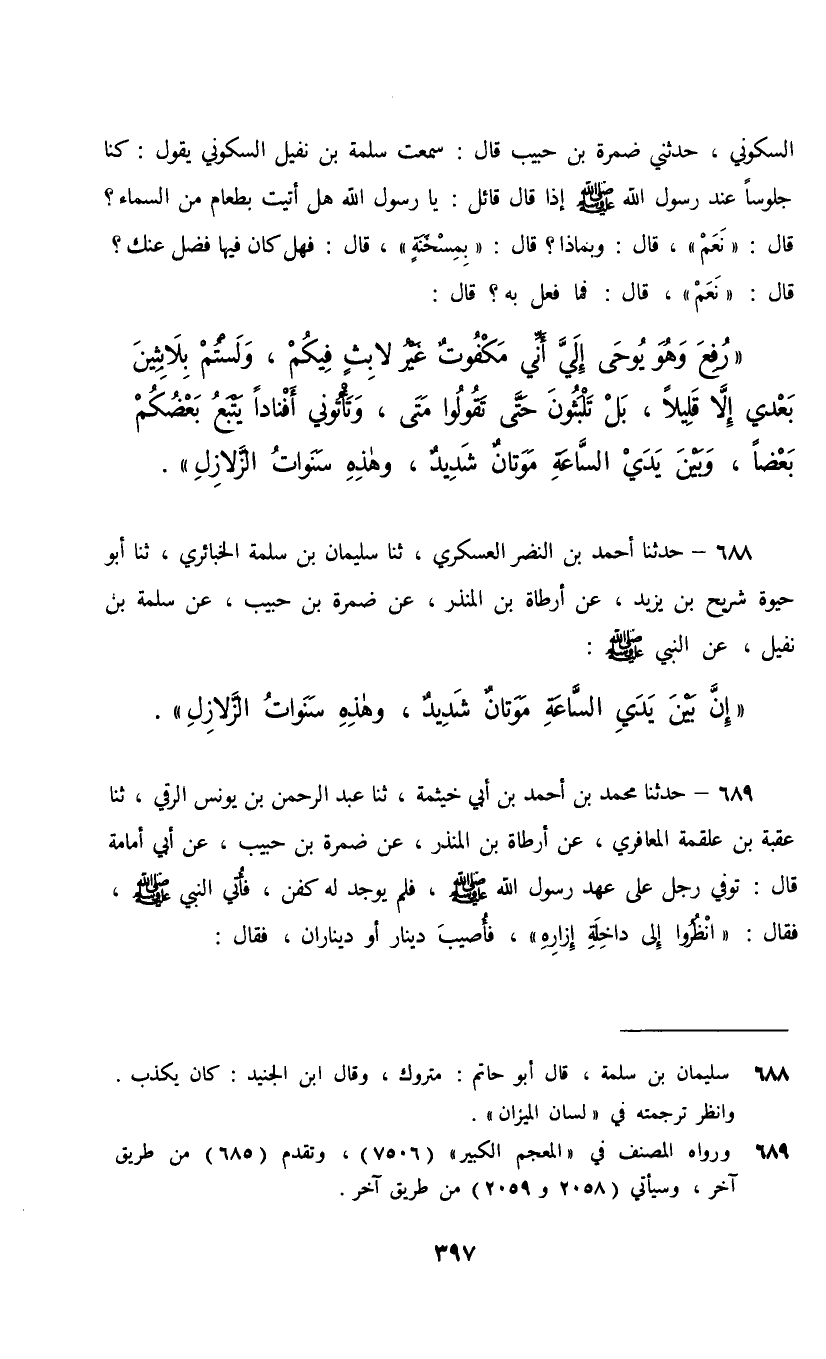 السكوني ، حدثني ضمرة بن حبيب قال : سمعت سلمة بن نفيل السكوني يقول : كنا
جلوساً عند رسول الله ﷺ إذا قال قائل : يا رسول الله هل أتيت بطعام من السماء ؟
قال : « نَعَمْ » ، قال : وبماذا ؟ قال : « بِمِسْخَنَةٍ » ، قال : فهل كان فيها فضل عنك ؟
قال : « نَعَمْ » ، قال : فما فعل به ؟ قال :
« رُفِعَ وَهُوَ يُوحَى إِلَيَّ أَنِّي مَكْفُوتٌ غَيْرُ لابِثٍ فِيكُمْ ، وَلَسْتُمْ بِلَابِثِينَ
بَعْدي إِلَّا قَلِيلاً ، بَلْ تَلْبَثُونَ حَتَّى تَقُولُوا مَتَى ، وَتَأْتُوني أَفْناداً يَتْبَعُ بَعْضُكُمْ
بَعْضاً ، وَبَيْنَ يَدَيْ السَّاعَةِ مَوَتانٌ شَدِيدٌ ، وهٰذِهِ سَنَواتُ الزَّلازِلِ » .
٦٨٨ – حدثنا أحمد بن النضر العسكري ، ثنا سليمان بن سلمة الخبائري ، ثنا أبو
حيوة شريح بن يزيد ، عن أرطاة بن المنذر ، عن ضمرة بن حبيب ، عن سلمة بن
نفيل ، عن النبي ﷺ :
« إِنَّ بَيْنَ يَدَيِ السَّاعَةِ مَوَتانٌ شَدِيدٌ ، وهٰذِهِ سَنَواتُ الزَّلازِلِ » .
٦٨٩ – حدثنا محمد بن أحمد بن أبي خيثمة ، ثنا عبد الرحمن بن يونس الرقي ، ثنا
عقبة بن علقمة المعافري ، عن أرطاة بن المنذر ، عن ضمرة بن حبيب ، عن أبي أمامة
قال : توفي رجل على عهد رسول الله ﷺ ، فلم يوجد له كفن ، فأُتي النبي ﷺ ،
فقال : « انْظُرُوا إِلى داخِلَةِ إِزارِهِ » ، فأُصيبَ دينار أو ديناران ، فقال :
٦٨٨ سليمان بن سلمة ، قال أبو حاتم : متروك ، وقال ابن الجنيد : كان يكذب .
وانظر ترجمته في « لسان الميزان » .
٦٨٩ ورواه المصنف في « المعجم الكبير » (٧٥٠٦) ، وتقدم (٦٨٥) من طريق
آخر ، وسيأتي (٢٠٥٨ و ٢٠٥٩) من طريق آخر .
٣٩٧